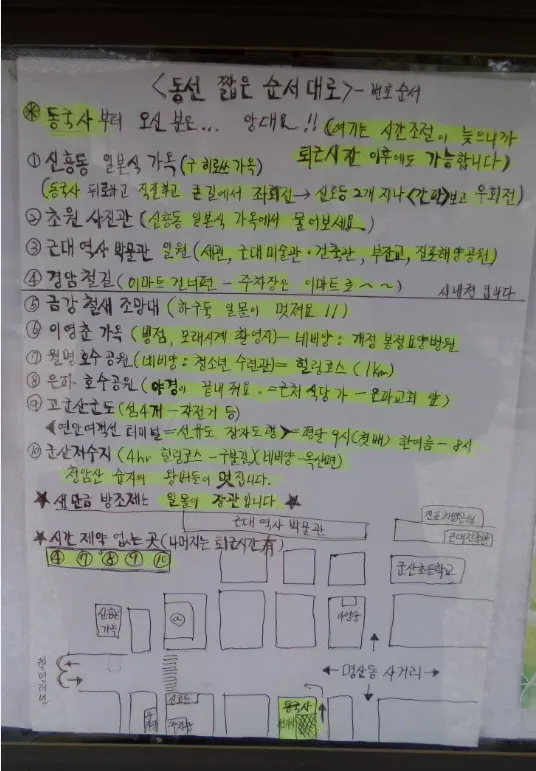 <동선 짧은 순서대로> - 번호순서
※ 동국사부터 오신 분은... 안대요!! (여기는 시간조절이 늦으니까
퇴근시간 이후에도 가능합니다)
① 신흥동 일본식 가옥 (구 히로쓰 가옥)
(동국사 뒤로하고 직진하고 큰길에서 좌회전 → 신호등 2개 지나 <간판>보고 우회전)
② 초원 사진관 (신흥동 일본식 가옥에서 물어보세요)
③ 근대 역사 박물관 일원 (세관, 근대미술관·건축관, 부잔교, 진포해양공원)
④ 경암 철길 (이마트 건너편 - 주차장은 이마트로~~)
시내권 입니다
⑤ 금강 철새 조망대 (하구둑 일몰이 멋져요!!)
⑥ 이영춘 가옥 (빙점, 모래시계 촬영지) - 네비양 : 개정 본정요양병원
⑦ 월명호수공원 (네비양 : 청소년 수련관) = 힐링코스 (1km)
⑧ 은파 호수공원 (야경이 끝내줘요. = 근처 식당가 - 은파교회 앞)
⑨ 고군산군도 (섬4개 - 자전거 등)
<연안여객선 터미널 = 선유도, 장자도행> = 평달 9시(첫배) 한여름 - 8시
⑩ 군산저수지 (4hr 힐링코스 - 구불길) (네비양 - 옥산면)
청암산 습지의 왕버들이 멋집니다.
★ 새만금 방조제는 일몰이 장관입니다. ★
★ 시간 제약 없는 곳 (나머지는 퇴근시간 有)
④ ⑦ ⑧ ⑨ ⑩
근대 역사 박물관
진포해양공원
근대건축관
군산초등학교
신흥동
가옥
이성당
월명터널
← 명산동 사거리 →
신호등
동국사